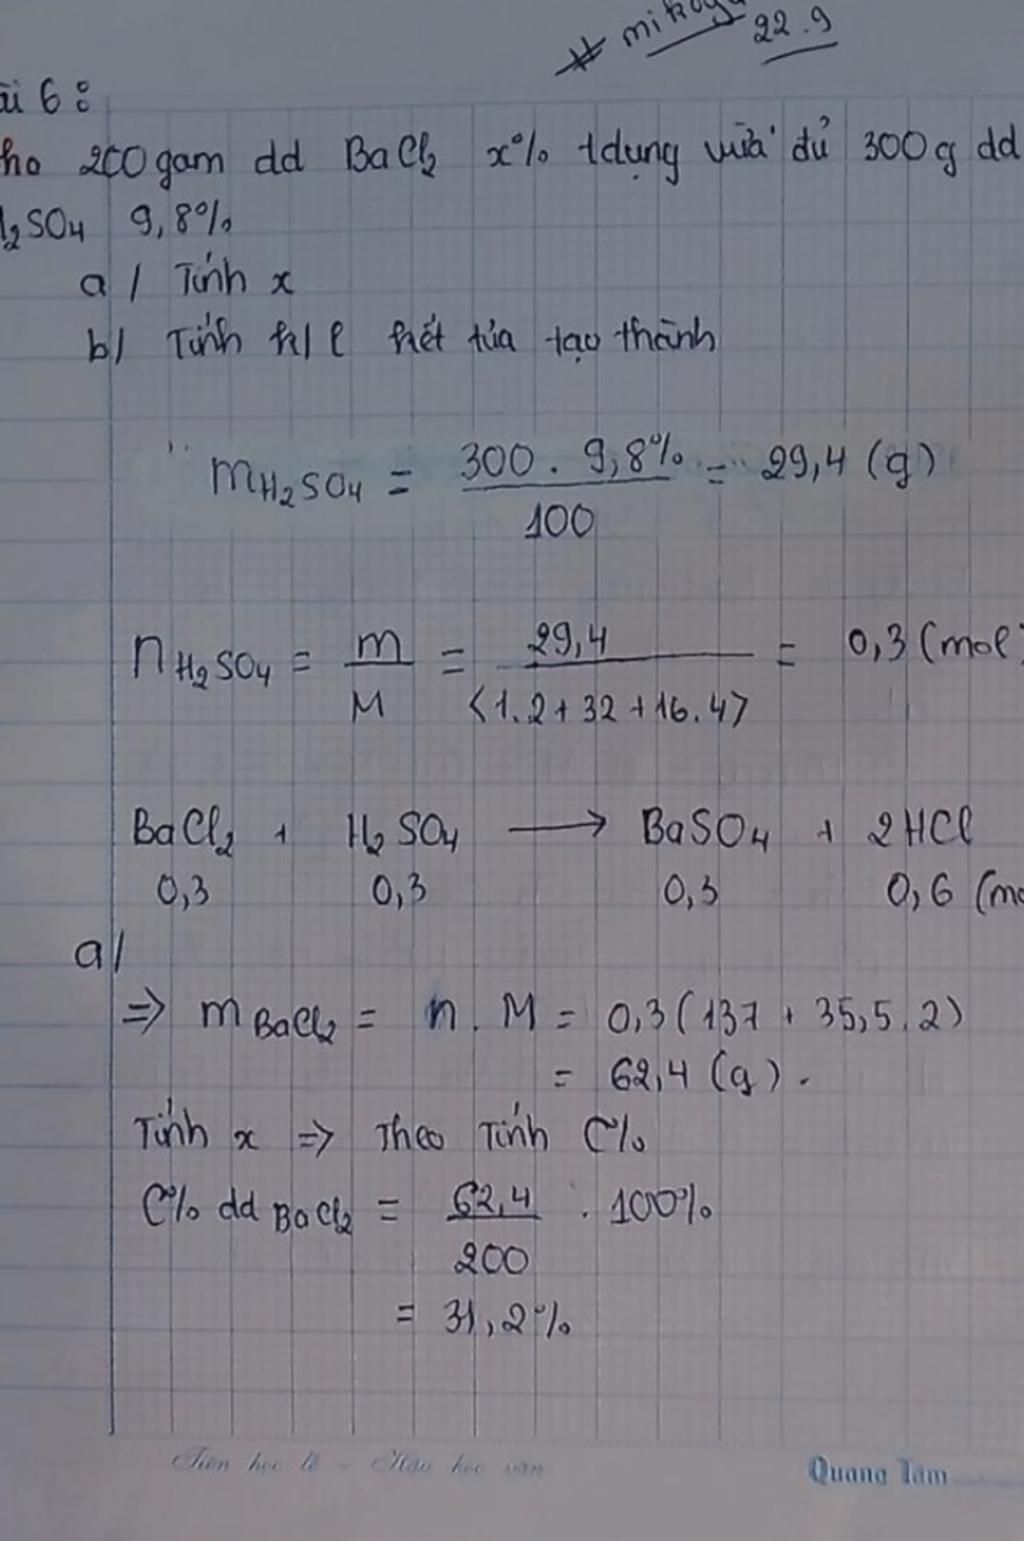 # mikogu
22.9
ài 6:
ho 200gam dd BaCl2 x% tdụng vừa đủ 300g dd
H2SO4 9,8%
a/ Tính x
b/ Tính k/l kết tủa tạo thành
mH2SO4 = 300 . 9,8% / 100 = 29,4 (g)
nH2SO4 = m / M = 29,4 / <1.2+32+16.4> = 0,3 (mol)
BaCl2 + H2SO4 ⟶ BaSO4 + 2HCl
0,3 0,3 0,3 0,6 (mo
a/
=> mBaCl2 = n . M = 0,3(137 + 35,5.2)
= 62,4 (g).
Tính x => Theo Tính C%
C% dd BaCl2 = 62,4 / 200 . 100%
= 31,2%
Tiên học lễ - Hậu học văn
Quang Tâm